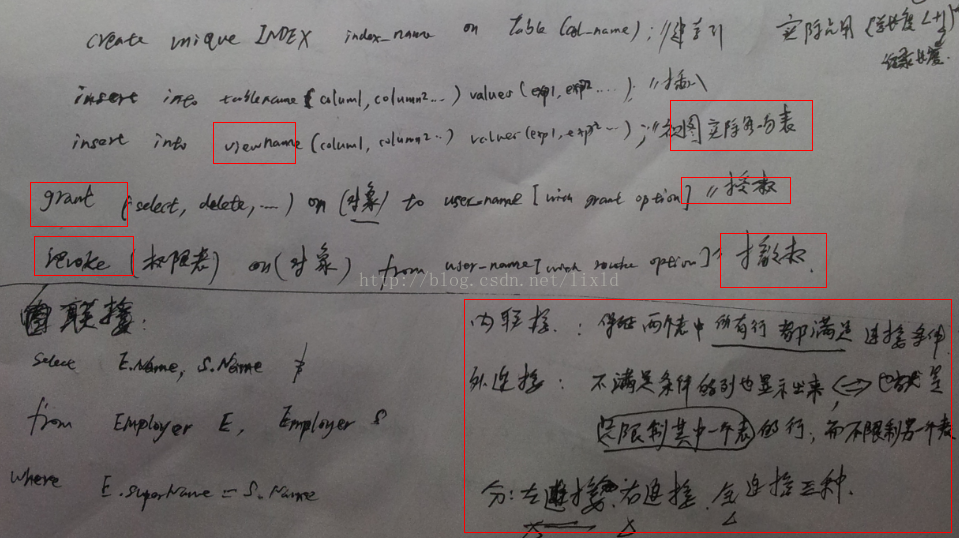 create unique INDEX index_name on table (col_name); //建索引 实际占用 (学长度 L+1)*
记录长度.
insert into tablename (colum1, column2...) values (exp1, exp2....); //插入
insert into viewname (colum1, column2..) values (exp1, exp2...); //视图实际是为表
grant (select, delete, ....) on (对象) to user_name [with grant option] //授权
revoke (权限表) on (对象) from user-name [with route option] // 收权.
http://blog.csdn.net/lixld
自联接:
select E.Name, S.Name
from Employer E, Employer S
where E.superName = S.Name
内联接: 保证两个表中所有行都满足连接条件
外连接: 不满足条件的列也显示出来 <=> 也就是
只限制其中一个表的行, 而不限制另一个表.
分: 左连接, 右连接, 全连接三种.